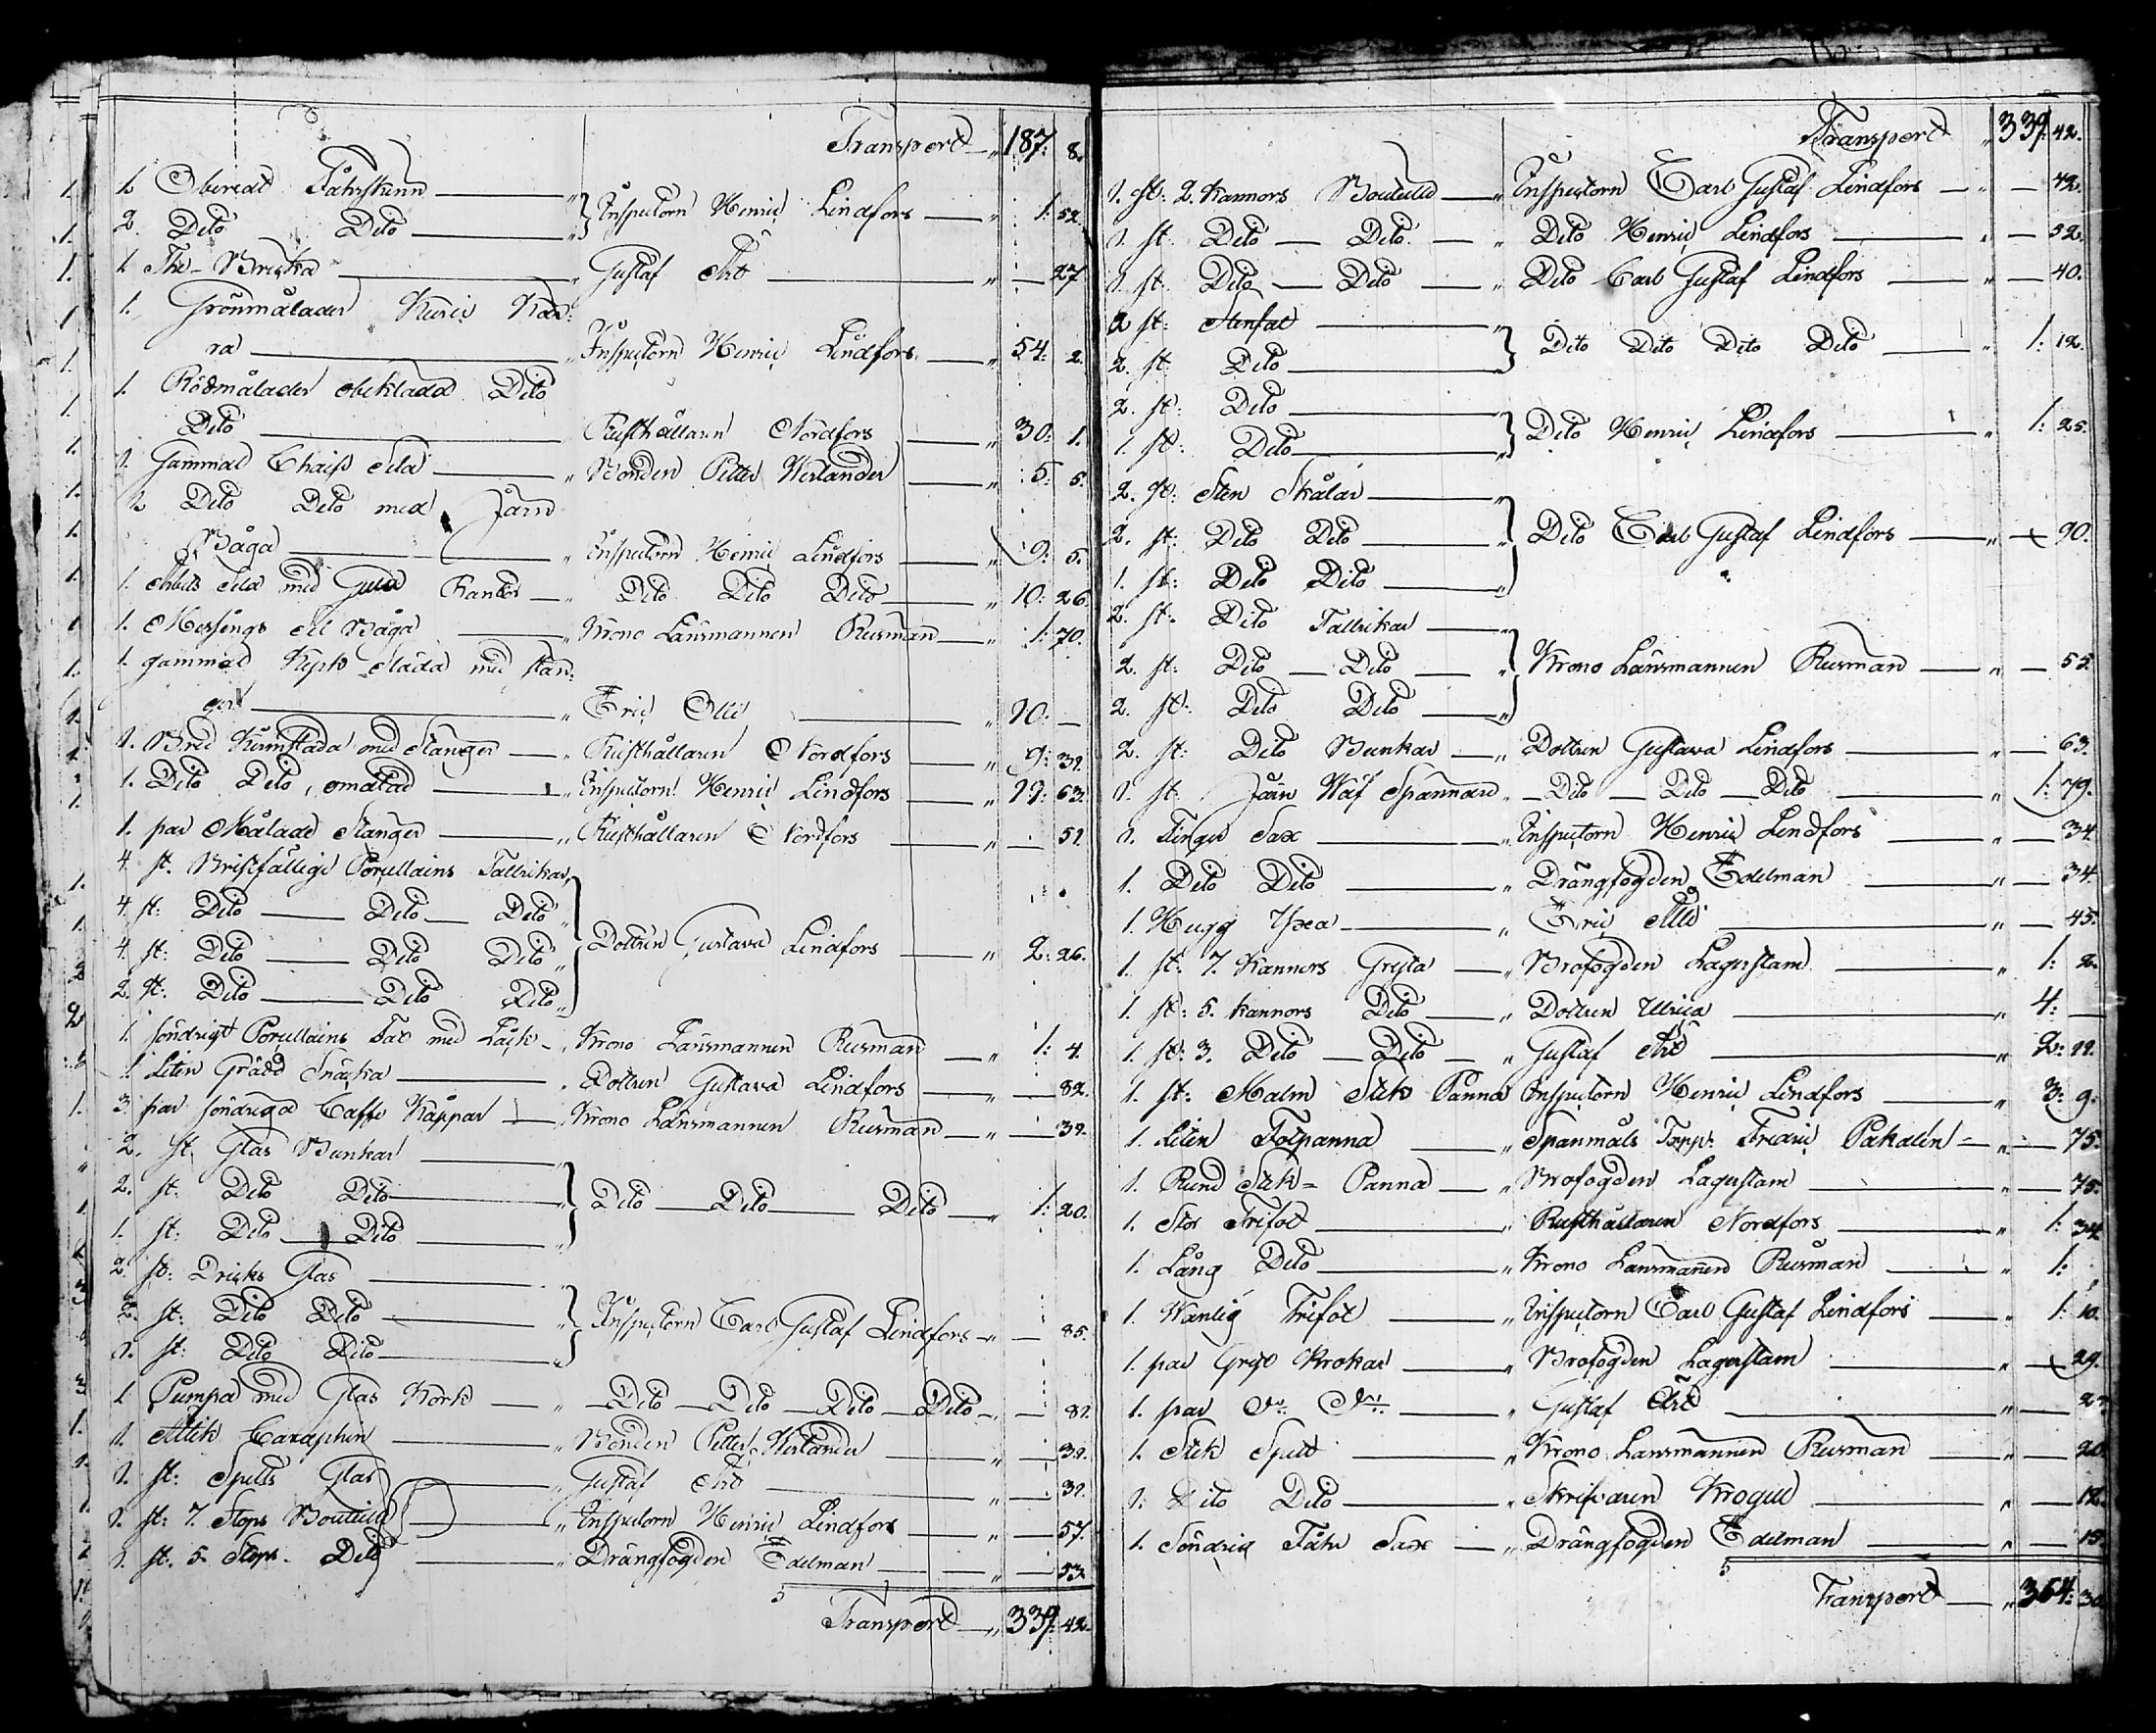 Transport — " 187: 8.
1. Oberedt Fårskinn — "
2. Dito Dito — " } Inspectorn Henric Lindfors — " 1: 52.
1 The-Bricka — " Gustaf — " — 27
1. Grönmålader Kuric Kär:
ra — " Inspectorn Henric Lindfors — " 54: 2.
1. Rödmålader obeklädd Dito
Dito — " Rusthållaren Nordfors — " 30: 1.
1. Gammal Chais Sela — " Bonden Petter Werlander — " 5: 5.
1. Dito Dito med Järn
Båga — " Inspectorn Henric Lindfors — " 9: 5.
1. Arbets Sela med Gula Rankor — " Dito Dito Dito — " 10: 26.
1. Messings Sel Båga — " Krono Länsmannen Rusman — " 1: 70.
1. gammal Släda med stän:
ger — " Eric Olli — " 10: —
1. Bred Släda med Stänger — " Rusthållaren Nordfors — " 9: 39.
1. Dito Dito, omålad — " Inspectorn Henric Lindfors — " 11: 63.
1. par Målade Stänger — " Rusthållaren Nordfors — " — 51.
4 st. Bristfällige Porcellains Tallrikar, "
4. st: Dito — Dito — Dito "
4. st: Dito — Dito Dito " } Dottren Gustava Lindfors — " 2: 26.
2. st: Dito — Dito Dito "
1. söndrigt Porcellains Fat med Låck — " Krono Länsmannen Rusman — " 1: 4.
1. Liten Grädd Snäcka — " Dottren Gustava Lindfors — " — 82.
3. par söndriga Caffe Kåppar — " Krono Länsmannen Rusman — " — 39.
2. st. Glas Bunkar — "
2. st: Dito Dito — " } Dito — Dito — Dito — " 1: 20.
1. st: Dito — Dito — "
2. st: Dricks Glas — "
2. st: Dito Dito — " } Inspectorn Carl Gustaf Lindfors — " — 85.
1. st: Dito Dito — "
1 Pumpa med Glas Kork — " — Dito — Dito — Dito — Dito — " — 81.
1. Ättik Caraphin — " Bonden Petter Werlander — " — 39.
1. st: Spetts Glas — " Gustaf — " — 31.
1. st: 7. Stops Bouteill — " Inspectorn Henric Lindfors — " — 57.
1. st. 5. Stops. Dito — " Drängfogden Edelman — " — 53.
Transport — " 339: 42.
Transport " 339: 42.
1. st: 2. Kannors Bouteille — " Inspectorn Carl Gustaf Lindfors — " — 42.
1. st: Dito — Dito. — " Dito Henric Lindfors — " — 52.
1. st. Dito — Dito — " Dito Carl Gustaf Lindfors — " — 40.
2 st: Stenfat — "
2. st: Dito — " } Dito Dito Dito Dito — " 1: 12.
2. st: Dito — "
1. st: Dito — " } Dito Henric Lindfors — " 1: 25.
2. st: Sten Skålar — "
2. st: Dito Dito — " } Dito Carl Gustaf Lindfors — " — 90.
1. st: Dito Dito — "
2. st. Dito Tallrikar — "
2. st: Dito — Dito — " } Krono Länsmannen Rusman — " — 55.
2. st: Dito Dito — "
2. st: Dito Bunkar — " Dottren Gustava Lindfors — " — 63.
1. st. Järn Wäf Spännare " — Dito — Dito — Dito — " 1: 79.
1. Finger Sax — " Inspectorn Henric Lindfors — " — 34.
1. Dito Dito — " Drängfogden Edelman — " — 34.
1. Hugg Yxa — " Eric Olli — " — 45.
1. st: 7. Kannors Gryta — " Brofogden Lagerstam — " 1: 2.
1. st: 5. kannors Dito — " Dottren Ulrica — " 4: —
1. st: 3. Dito — Dito — " Gustaf — " 2: 11.
1. st: Malm Stek Panna Inspectorn Henric Lindfors — " 3: 9.
1. Liten Fotpanna — " Spanmåls Fredric Pakalén — " — 75.
1. Rund Stek = Panna — " Brofogden Lagerstam — " — 75.
1. Stor Trifot — " Rusthållaren Nordfors — " 1: 34
1. Lång Dito — " Krono Länsmannen Rusman — " 1:
1. Wanlig Trifot — " Inspectorn Carl Gustaf Lindfors — " 1: 10.
1. par Gryt Krokar — " Brofogden Lagerstam — " — 29.
1. par Do: Do: — " Gustaf — " — 27
1. Stek Spett — " Krono Länsmannen Rusman — " — 20
1. Dito Dito — " Skrifvaren Krogell — " — 12.
1. Söndrig Fåhr Sax — " Drängfogden Edelman — " — 15.
Transport — " 364: 30